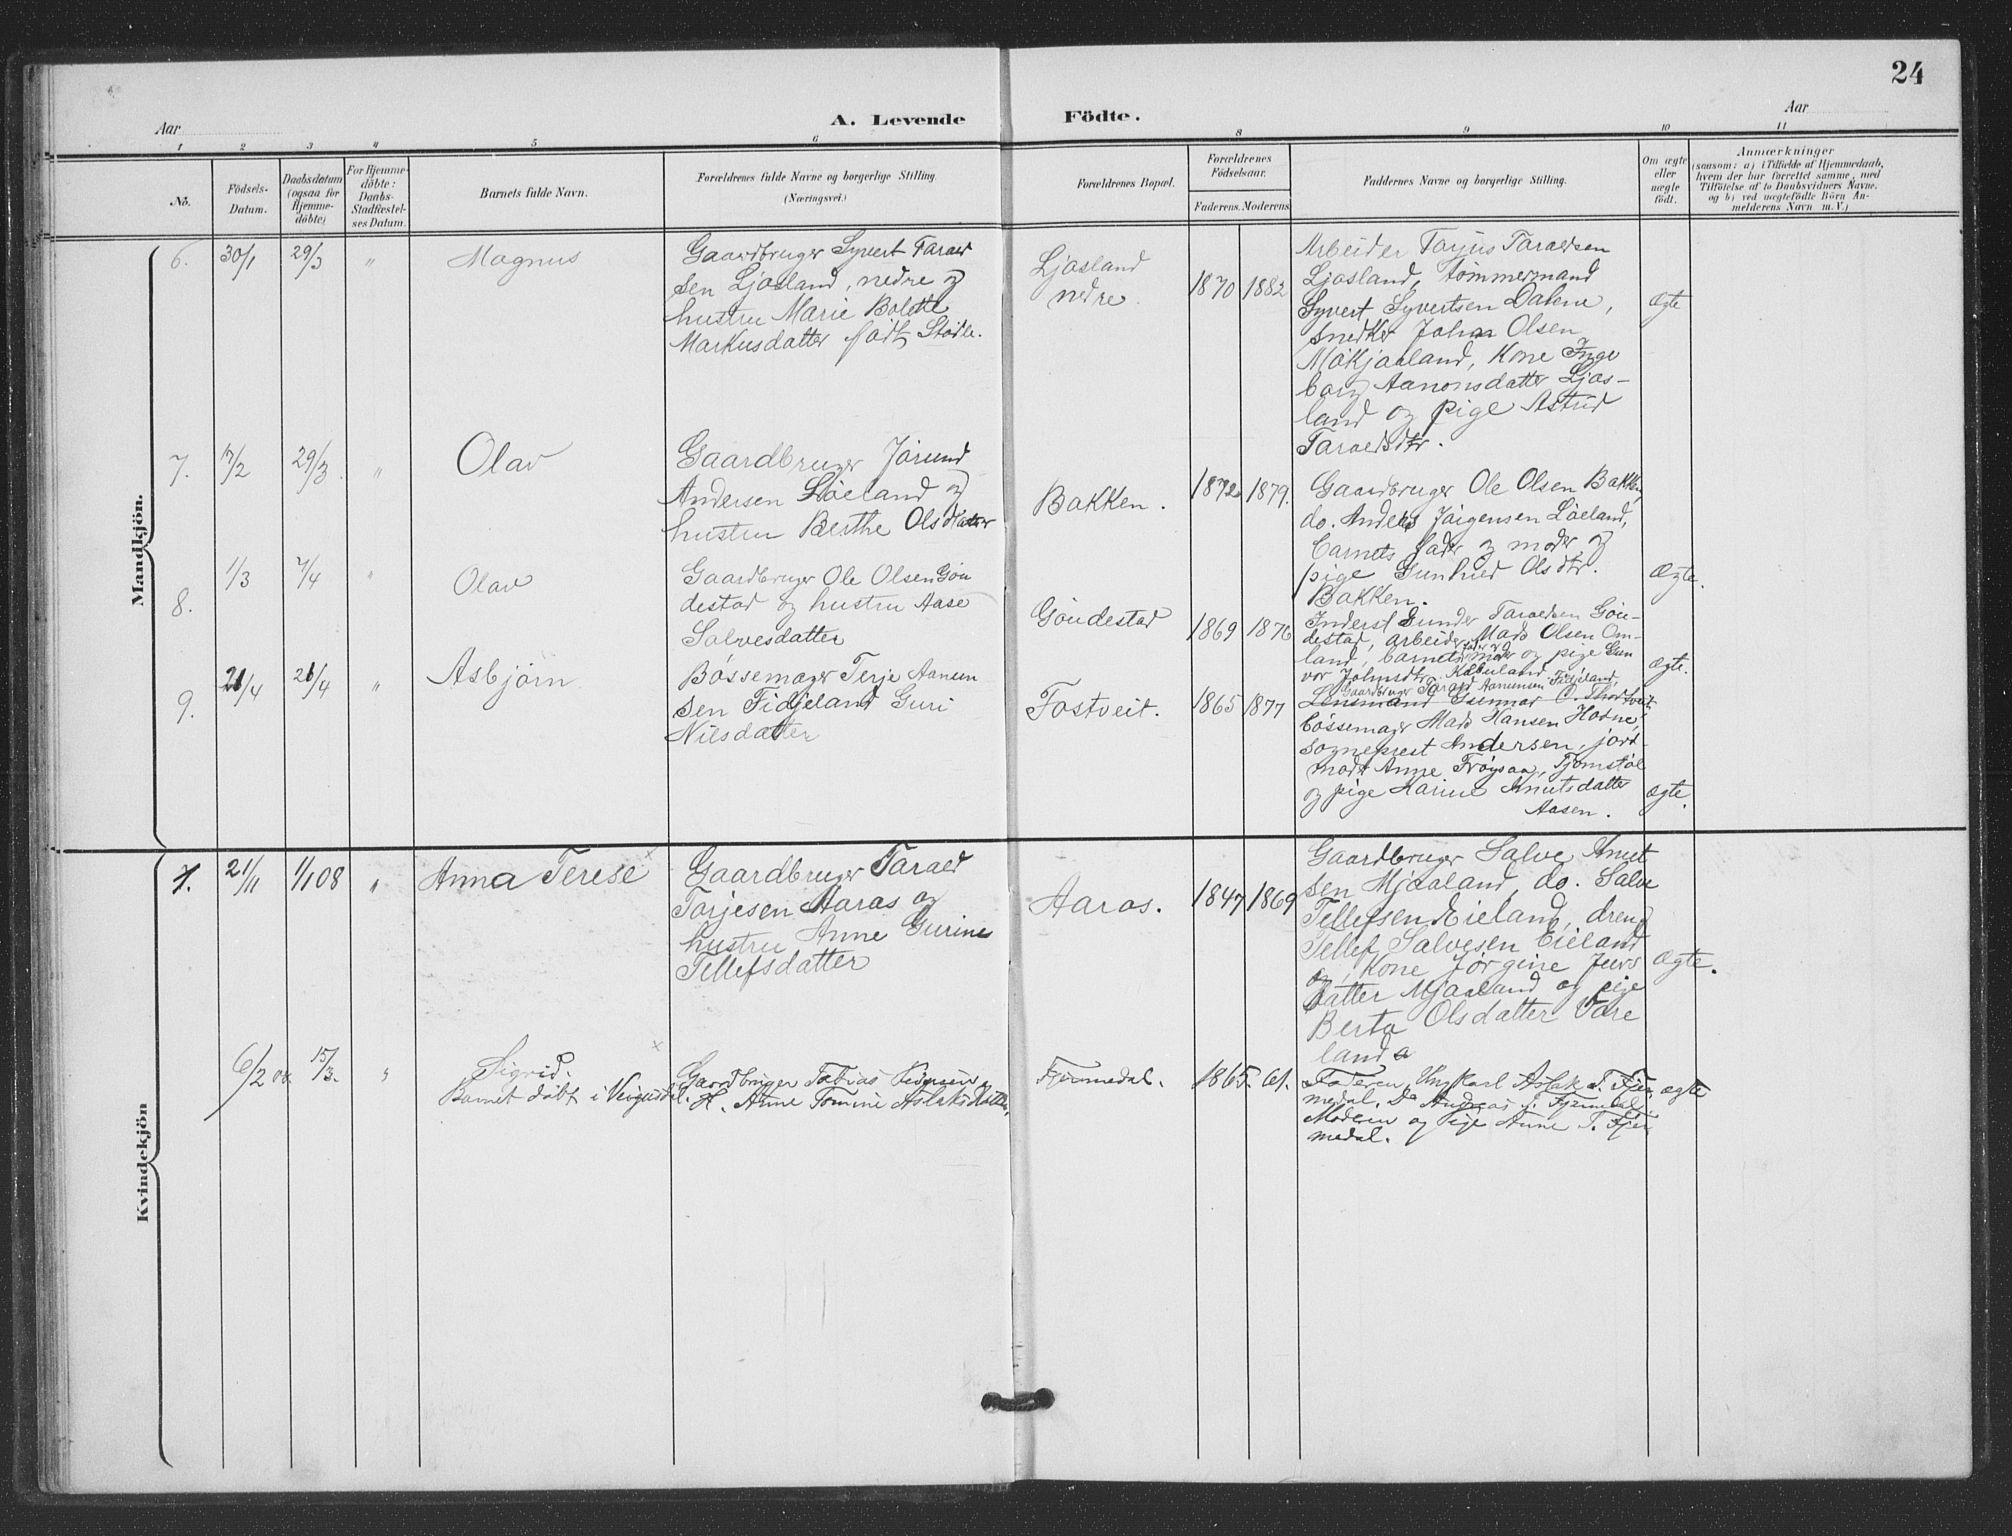 24
Aar
A. Levende Födte.
Aar
1 2 3 4 5 6 8 9 10 11
No.
Födsels-
Datum.
Daabsdatum
(ogsaa for
Hjemme-
döbte)
For Hjemme-
döbte:
Daabs-
Stadfæstel-
ses Datum.
Barnets fulde Navn.
Forældrenes fulde Navne og borgerlige Stilling
(Næringsvei.)
Forældrenes Bopæl.
Forældrenes
Födselsaar.
Faderens. Moderens
Faddernes Navne og borgerlige Stilling.
Om ægte
eller
uægte
födt.
Anmærkninger
(saasom: a) i Tilfælde af Hjemmedaab,
hvem der har forrettet samme, med
Tilföielse af to Daabsvidners Navne.
og b) ved uægtefödte Börn An-
melderens Navn m. V.)
Mandkjön.
6. 30/1 29/3 " Magnus
Gaardbruger Syvert Tarald
sen Ljosland, nedre og
hustru Marie Bolette
Markusdatter født Stødle.
Ljosland
nedre.
1870 1882
Arbeider Tarjus Taraldsen
Ljosland, tømmermand
Syvert Syvertsen Dalene,
snedker Johan Olsen
Mökjaaland, Kone Inge
borg Aanonsdatter Ljos-
land og pige Astrid
Taraldsdtr.
ægte
7. 7/2 29/3. " Olav
Gaardbruger Jörund
Andersen Löeland og
hustru Berthe Olsdatter
Bakken.
1872 1879.
Gaardbruger Ole Olsen Bakken
do. Anders Jörgensen Löeland,
barnets fader og moder og
pige Gunhild Olsdtr.
Bakken.
ægte.
8. 1/3 7/4 " Olav
Gaardbruger Ole Olsen Göu
destad og hustru Aase
Salvesdatter
Göudestad
1869 1876
Inderst Gunder Taraldsen Göu-
destad, arbeider Mads Olsen Om-
land, barnets fader og moder og pige Gun
vor Johnsdtr.
ægte.
9. 21/4 26/4 " Asbjörn
Bössemager Terje Aanun
sen Fidjeland Guri
Nilsdatter
Fostveit.
1865 1877
Gaardbruger Tarald Aanunsen Fidjeland,
Lensmand Gunnar O. Thortveit
bössemager Mads Hansen Hodne,
sogneprest Andersen, jord-
mor Anne Fröysaa, Tjomstöl
og pige Karine Knutsdatter
Aasen.
ægte.
Kvindekjön
1. 21/11 1/1 08 " Anna Terese x
Gaardbruger Tarald
Torjesen Aaras og
hustru Anne Gurine
Tellefsdatter
Aaros.
1847 1869
Gaardbruger Salve Knut
sen Mjaaland, do. Salve
Tellefsen Eieland, dreng
Tellef Salvesen Eieland
og, Kone Jörgine Jens
datter Mjaaland og pige
Berta Olsdatter Vare
land
ægte.
6/2 08 15/3. " Sigrid. x
Barnet döbt i Veigusdal.
Gaardbruger Tobias Pedersen og
H. Anne Tomine Aslaksdatter,
Fjermedal.
1865. 61.
Faderen, Ungkarl Aslak T. Fjer
medal, Do Andreas T. Fjermedal
Moderen og Pige Anne T. Fjer
medal.
ægte